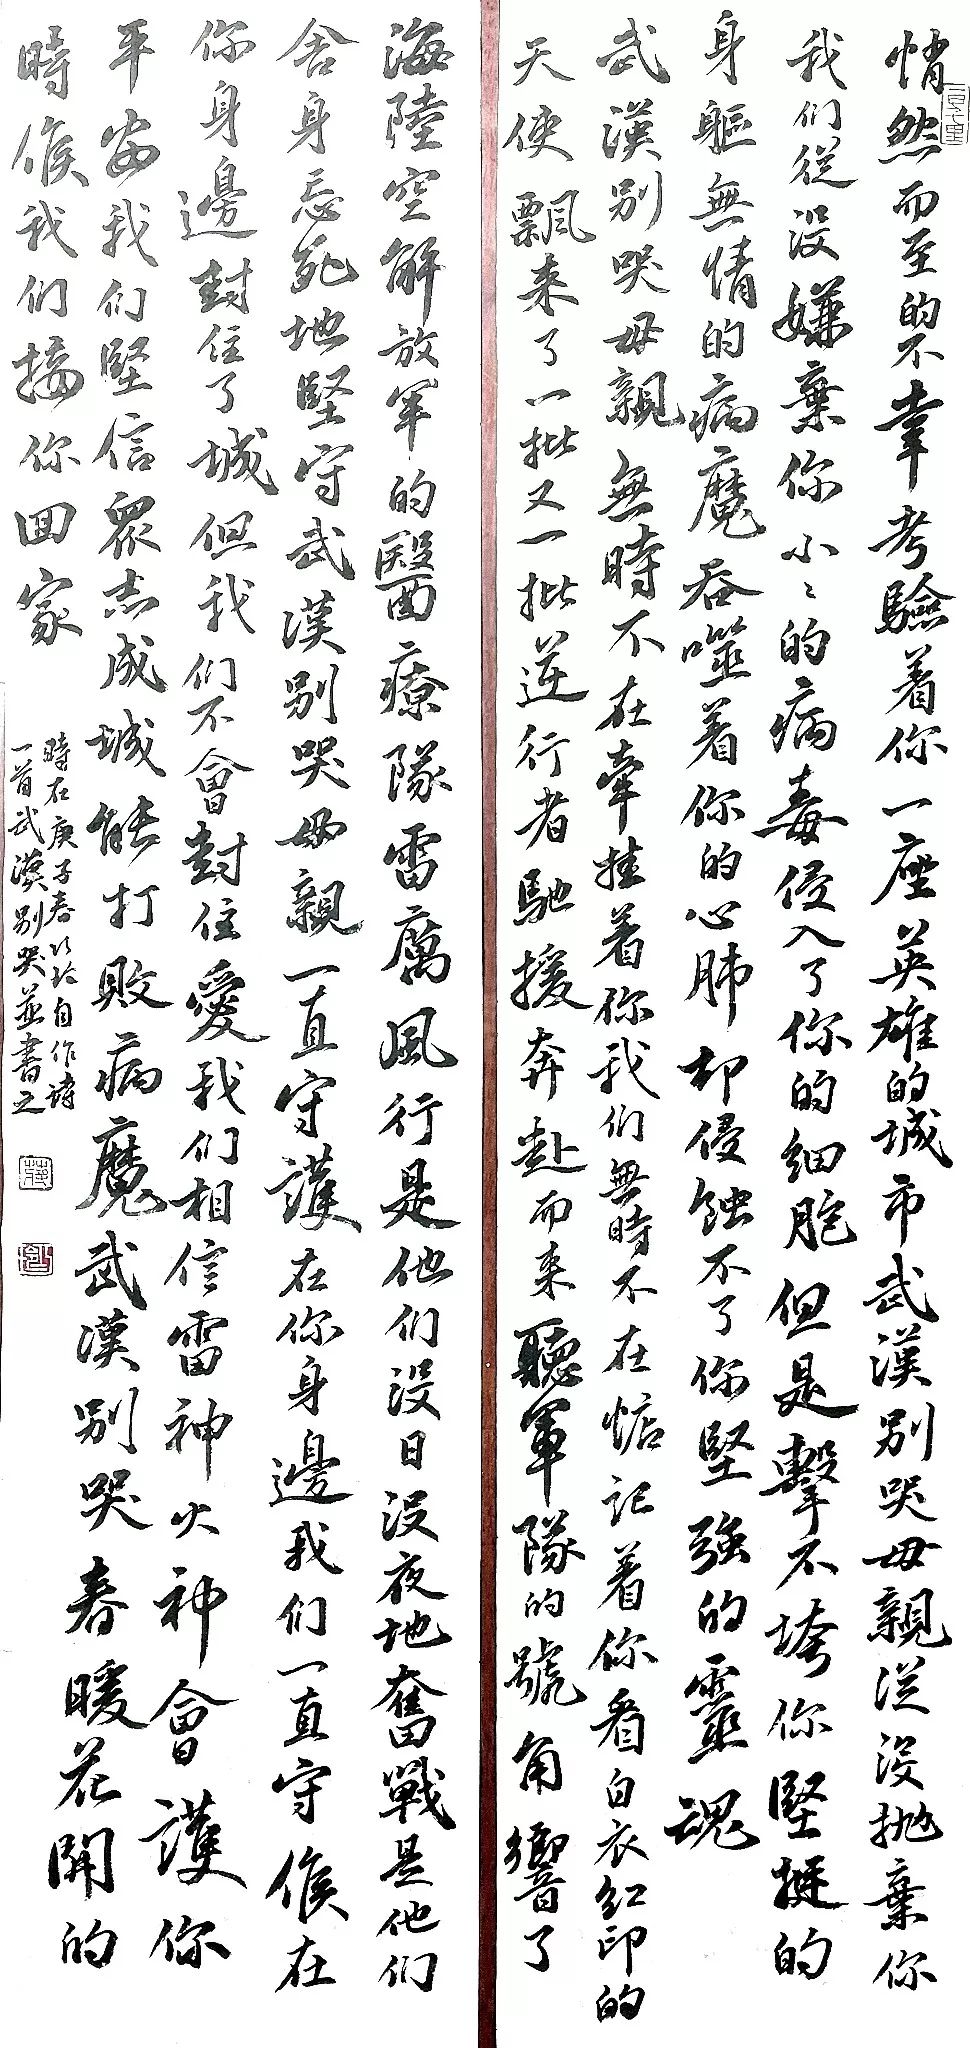 悄然而至的不幸考驗着你一座英雄的城市武漢别哭母親从没抛棄你
我们從没嫌棄你小々的病毒侵入了你的细胞但是擊不垮你堅挺的
身軀無情的病魔吞噬着你的心肺却侵蝕不了你堅強的靈魂
武漢别哭母親無時不在牽挂着你我们無時不在惦记着你看白衣红印的
天使飄来了一批又一批逆行者馳援奔赴而来聽軍隊的號角響了
海陸空解放军的醫療隊雷厲風行是他们没日没夜地奮戰是他们
舍身忘死地堅守武漢别哭母親一直守護在你身邊我们一直守候在
你身邊封住了城但我们不會封住愛我们相信雷神火神會護你
平安我们堅信眾志成城能打敗病魔武漢别哭春暖花開的
時候我们接你回家
時在庚子春自作詩
一首武漢别哭並書之